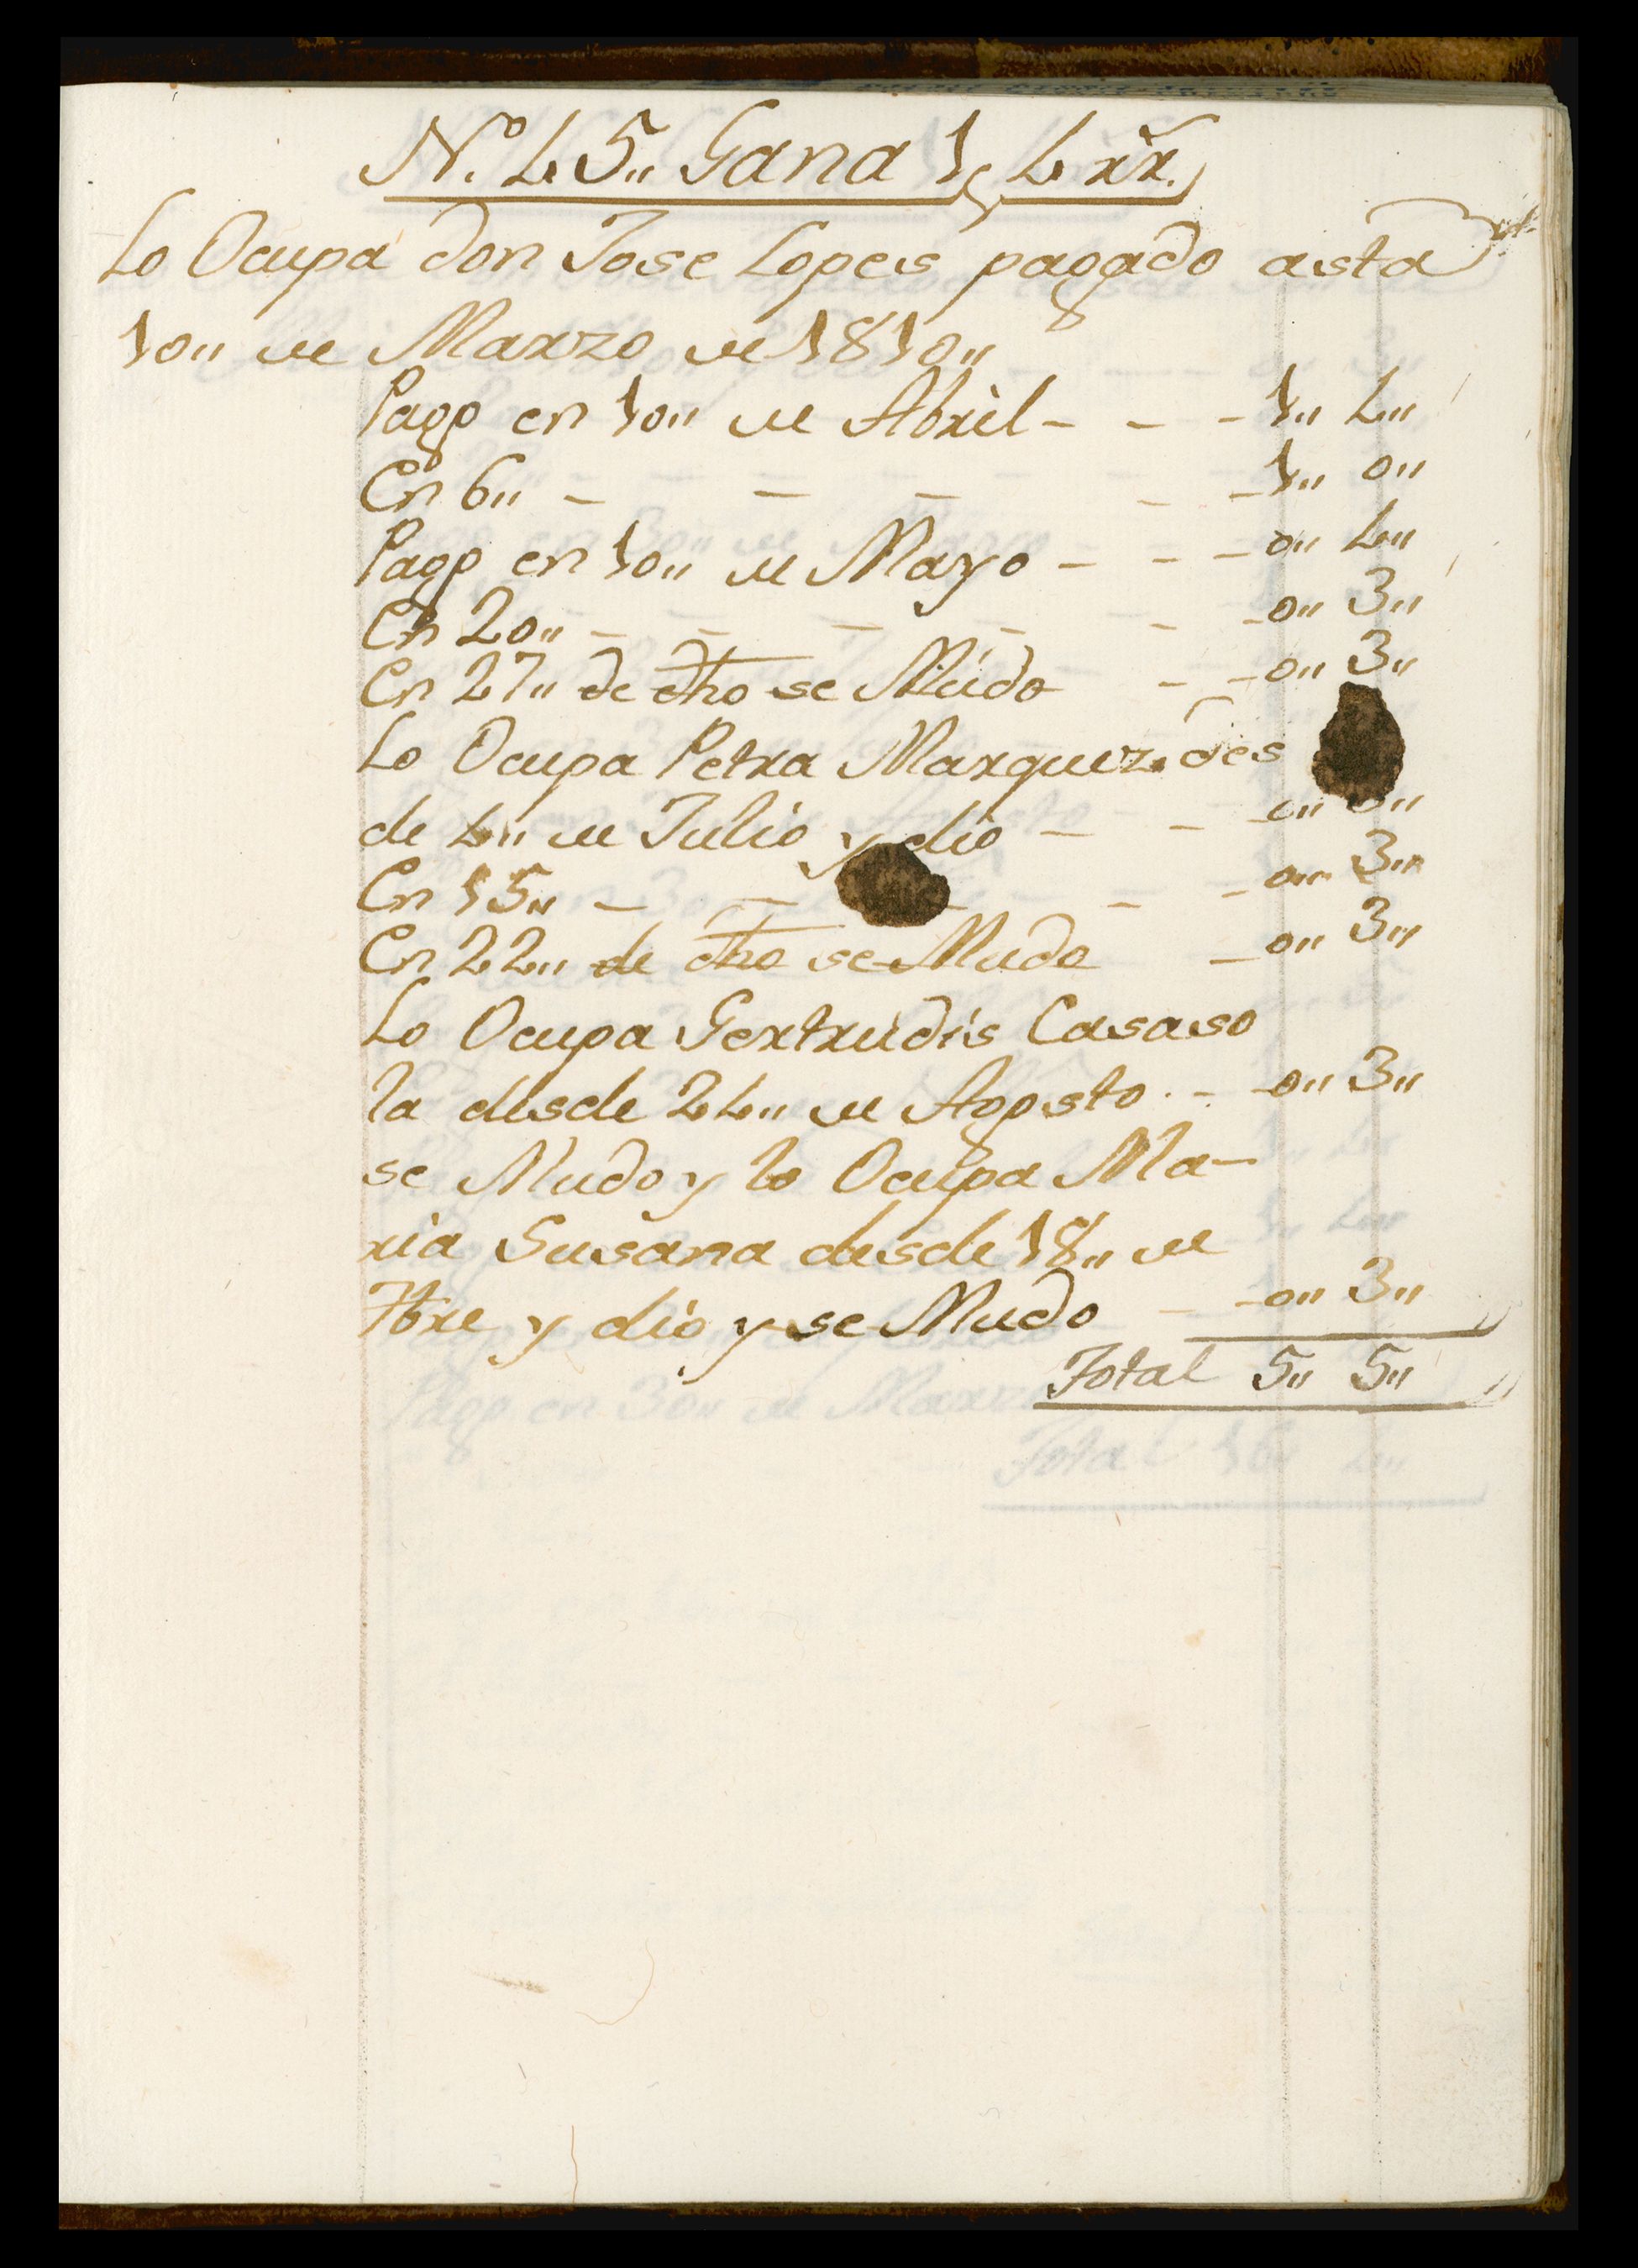 N.º 45,, Gana 1,, 4 rr.
Lo Ocupa don Jose Lopes pagado asta
10,, de Marzo de 1810,,
Pago en 10,, de Abril - - - 1,, 4,,
En 6,, - - - - - 1,, 0,,
Pago en 10,, de Mayo - - - 0,, 4,,
En 20,, - - - - - - 0,, 3,,
En 27,, de dho se Mudo - - 0,, 3,,
Lo Ocupa Petra Marquez des
de 4,, de Julio y dio - - - 0,, 3,,
En 15,, - - - - - 0,, 3,,
En 22,, de dho se Mudo - 0,, 3,,
Lo Ocupa Gertrudis Casaso
la desde 24,, de Agosto - - 0,, 3,,
se Mudo y lo Ocupa Ma-
ria Susana desde 18,, de
7bre y dio y se Mudo - - 0,, 3,,
Total 5,, 5,,